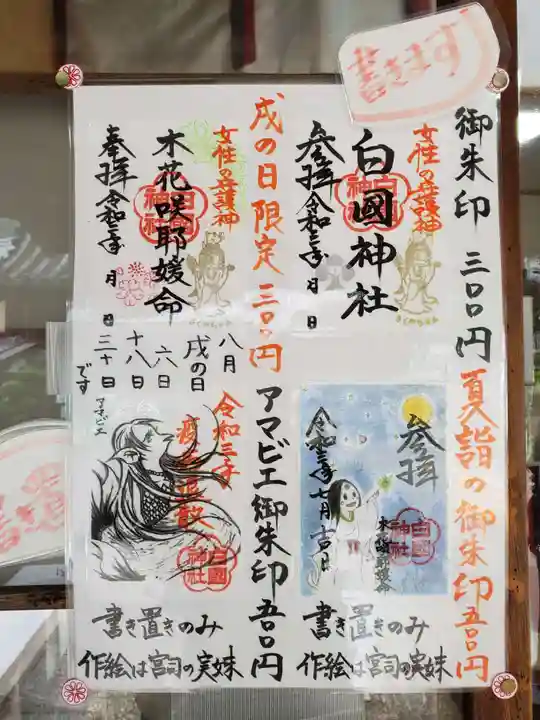 書きます
御朱印 三〇〇円
女性の守護神
白國神社
参拝 令和三年 月 日
戌の日限定 三〇〇円
女性の守護神
木花咲耶媛命
奉拝 令和三年 月 日
八月
戌の日
六日
十八日
三十日
です
夏詣の御朱印 五〇〇円
参拝
令和三年七月
書き置きのみ
作絵は宮司の実妹
アマビエ御朱印 五〇〇円
令和三年
アマビエ
白國神社
書き置きのみ
作絵は宮司の実妹